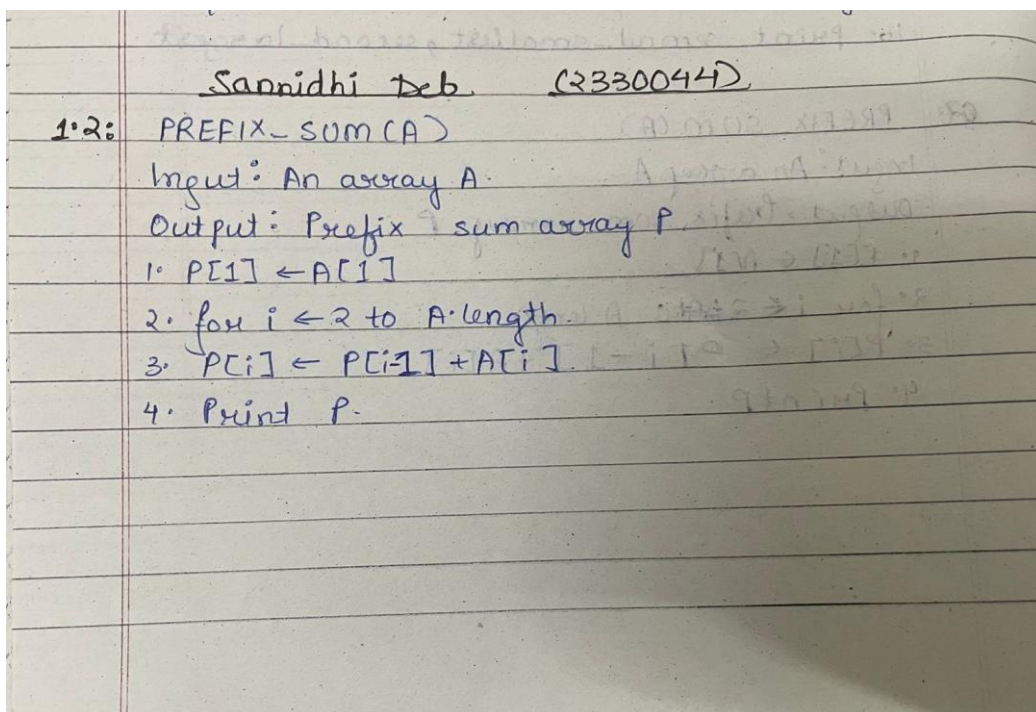 Sannidhi Deb (2330044)
1.2: PREFIX_SUM(A)
Input: An array A.
Output: Prefix sum array P.
1. P[1] ← A[1]
2. for i ← 2 to A.length.
3. P[i] ← P[i-1] + A[i].
4. Print P.